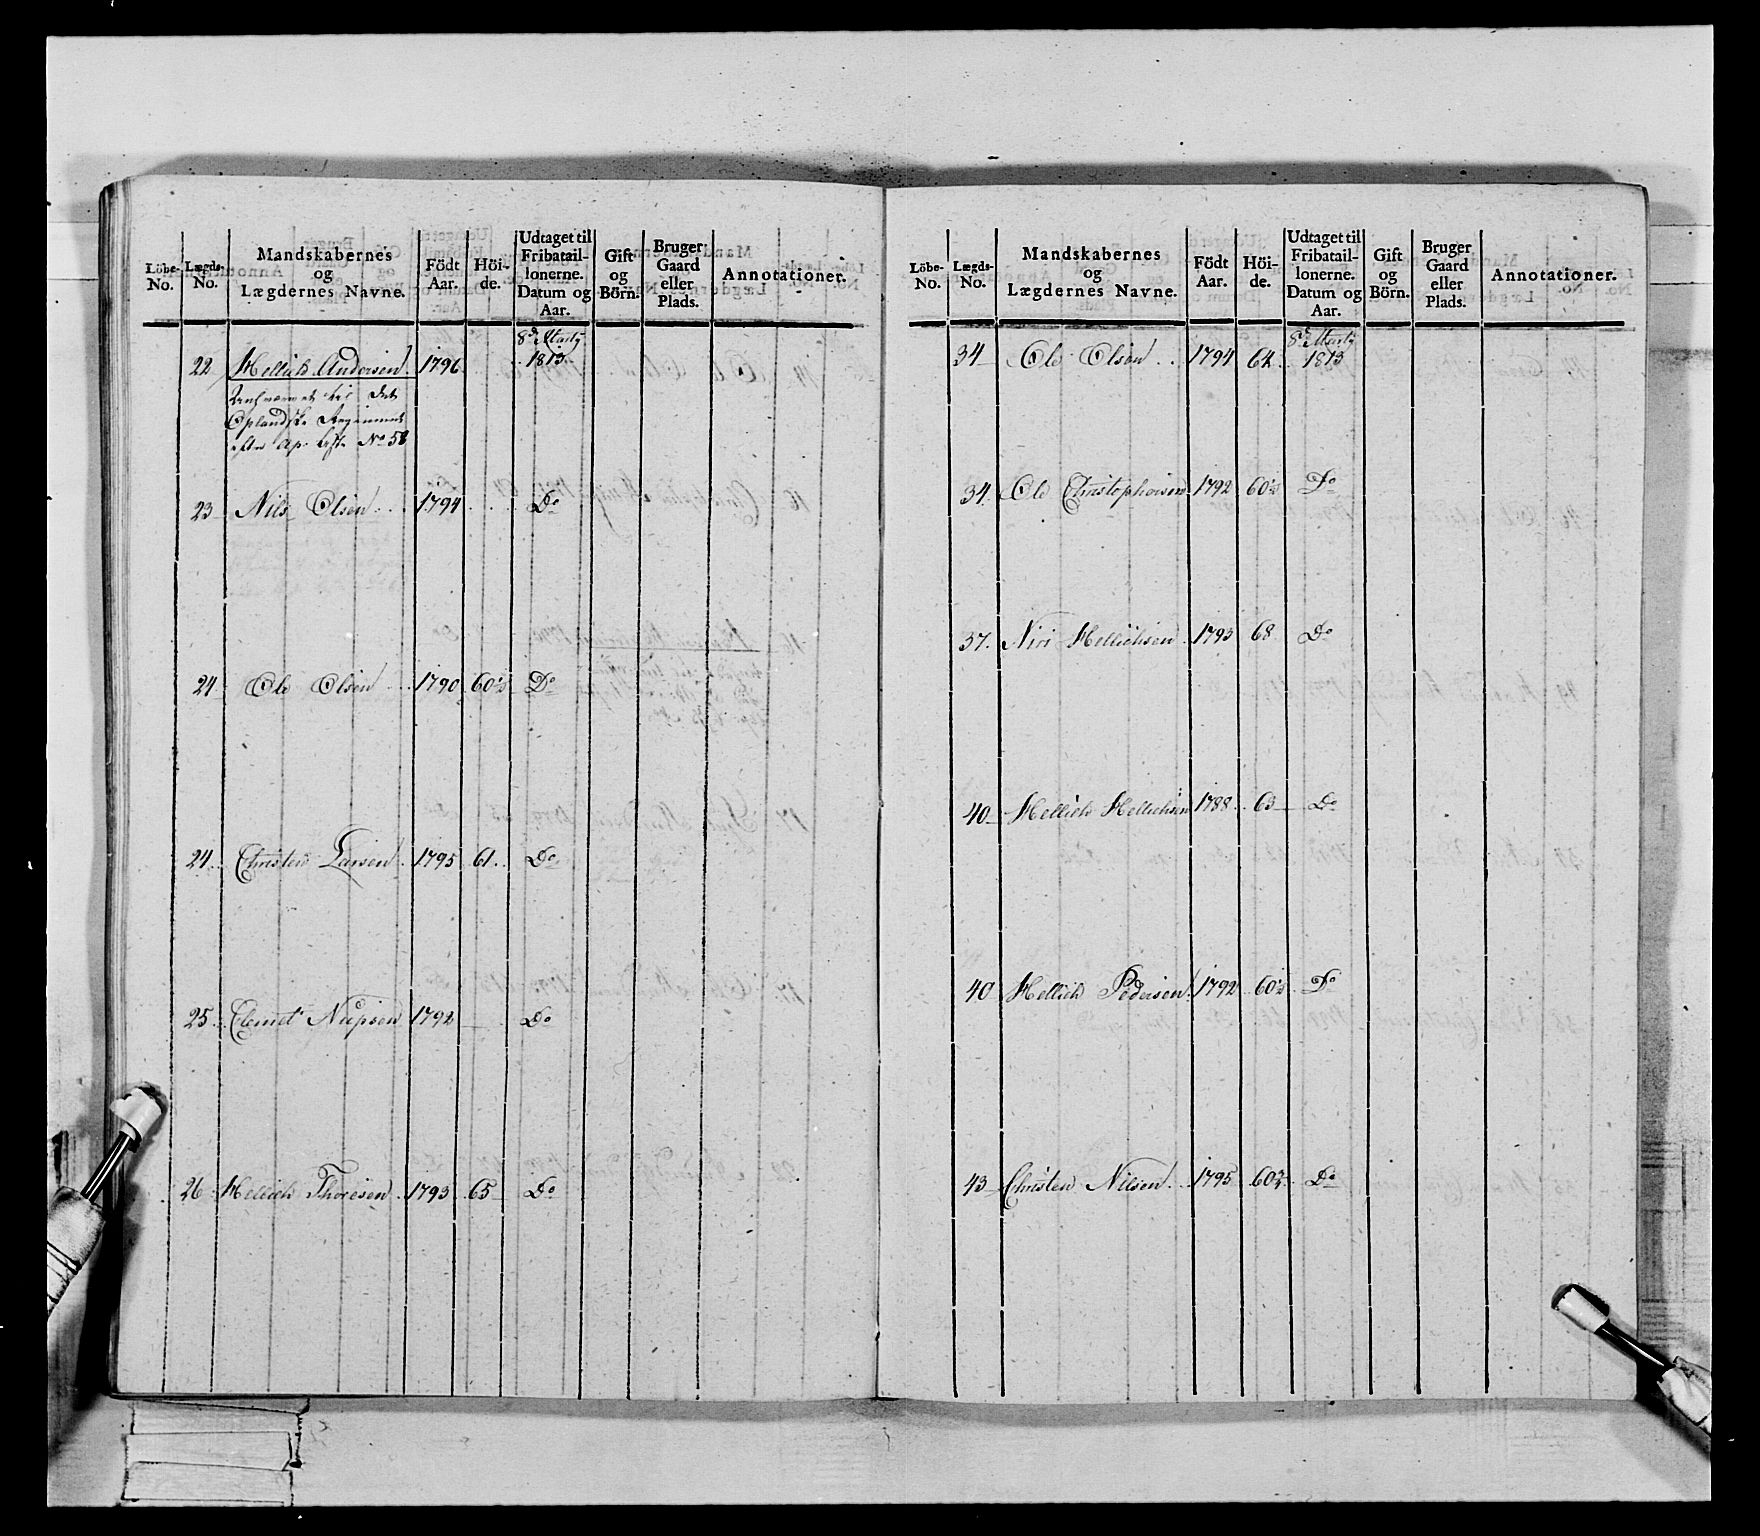 Löbe-No. Lægds-No. Mandskabernes og Lægdernes Navne. Födt Aar. Höi-de. Udtaget til Fribatail-lonerne. Datum og Aar. Gift og Börn. Bruger Gaard eller Plads. Annotationer.
22 Hellich Andersen 1796 8de Martj 1813
det
Oplandske Regiment
No 58
23 Nils Olsen 1794 Do
24 Ole Olsen 1790 60½ Do
24 Christen Larsen 1795 61 Do
25 Clemet 1792 Do
26 Hellich Thoresen 1793 65 Do
Löbe-No. Lægds-No. Mandskabernes og Lægdernes Navne. Födt Aar. Höi-de. Udtaget til Fribatail-lonerne. Datum og Aar. Gift og Börn. Bruger Gaard eller Plads. Annotationer.
34 Ole Olsen 1794 64 8de Martj 1813
34 Ole Christophersen 1792 60½ Do
37. Niri Hellichsen 1793 68 Do
40 Hellich Hellichsen 1788 63 Do
40 Hellich Pedersen 1792 60½ Do
43 Christen Nilsen 1795 60½ Do